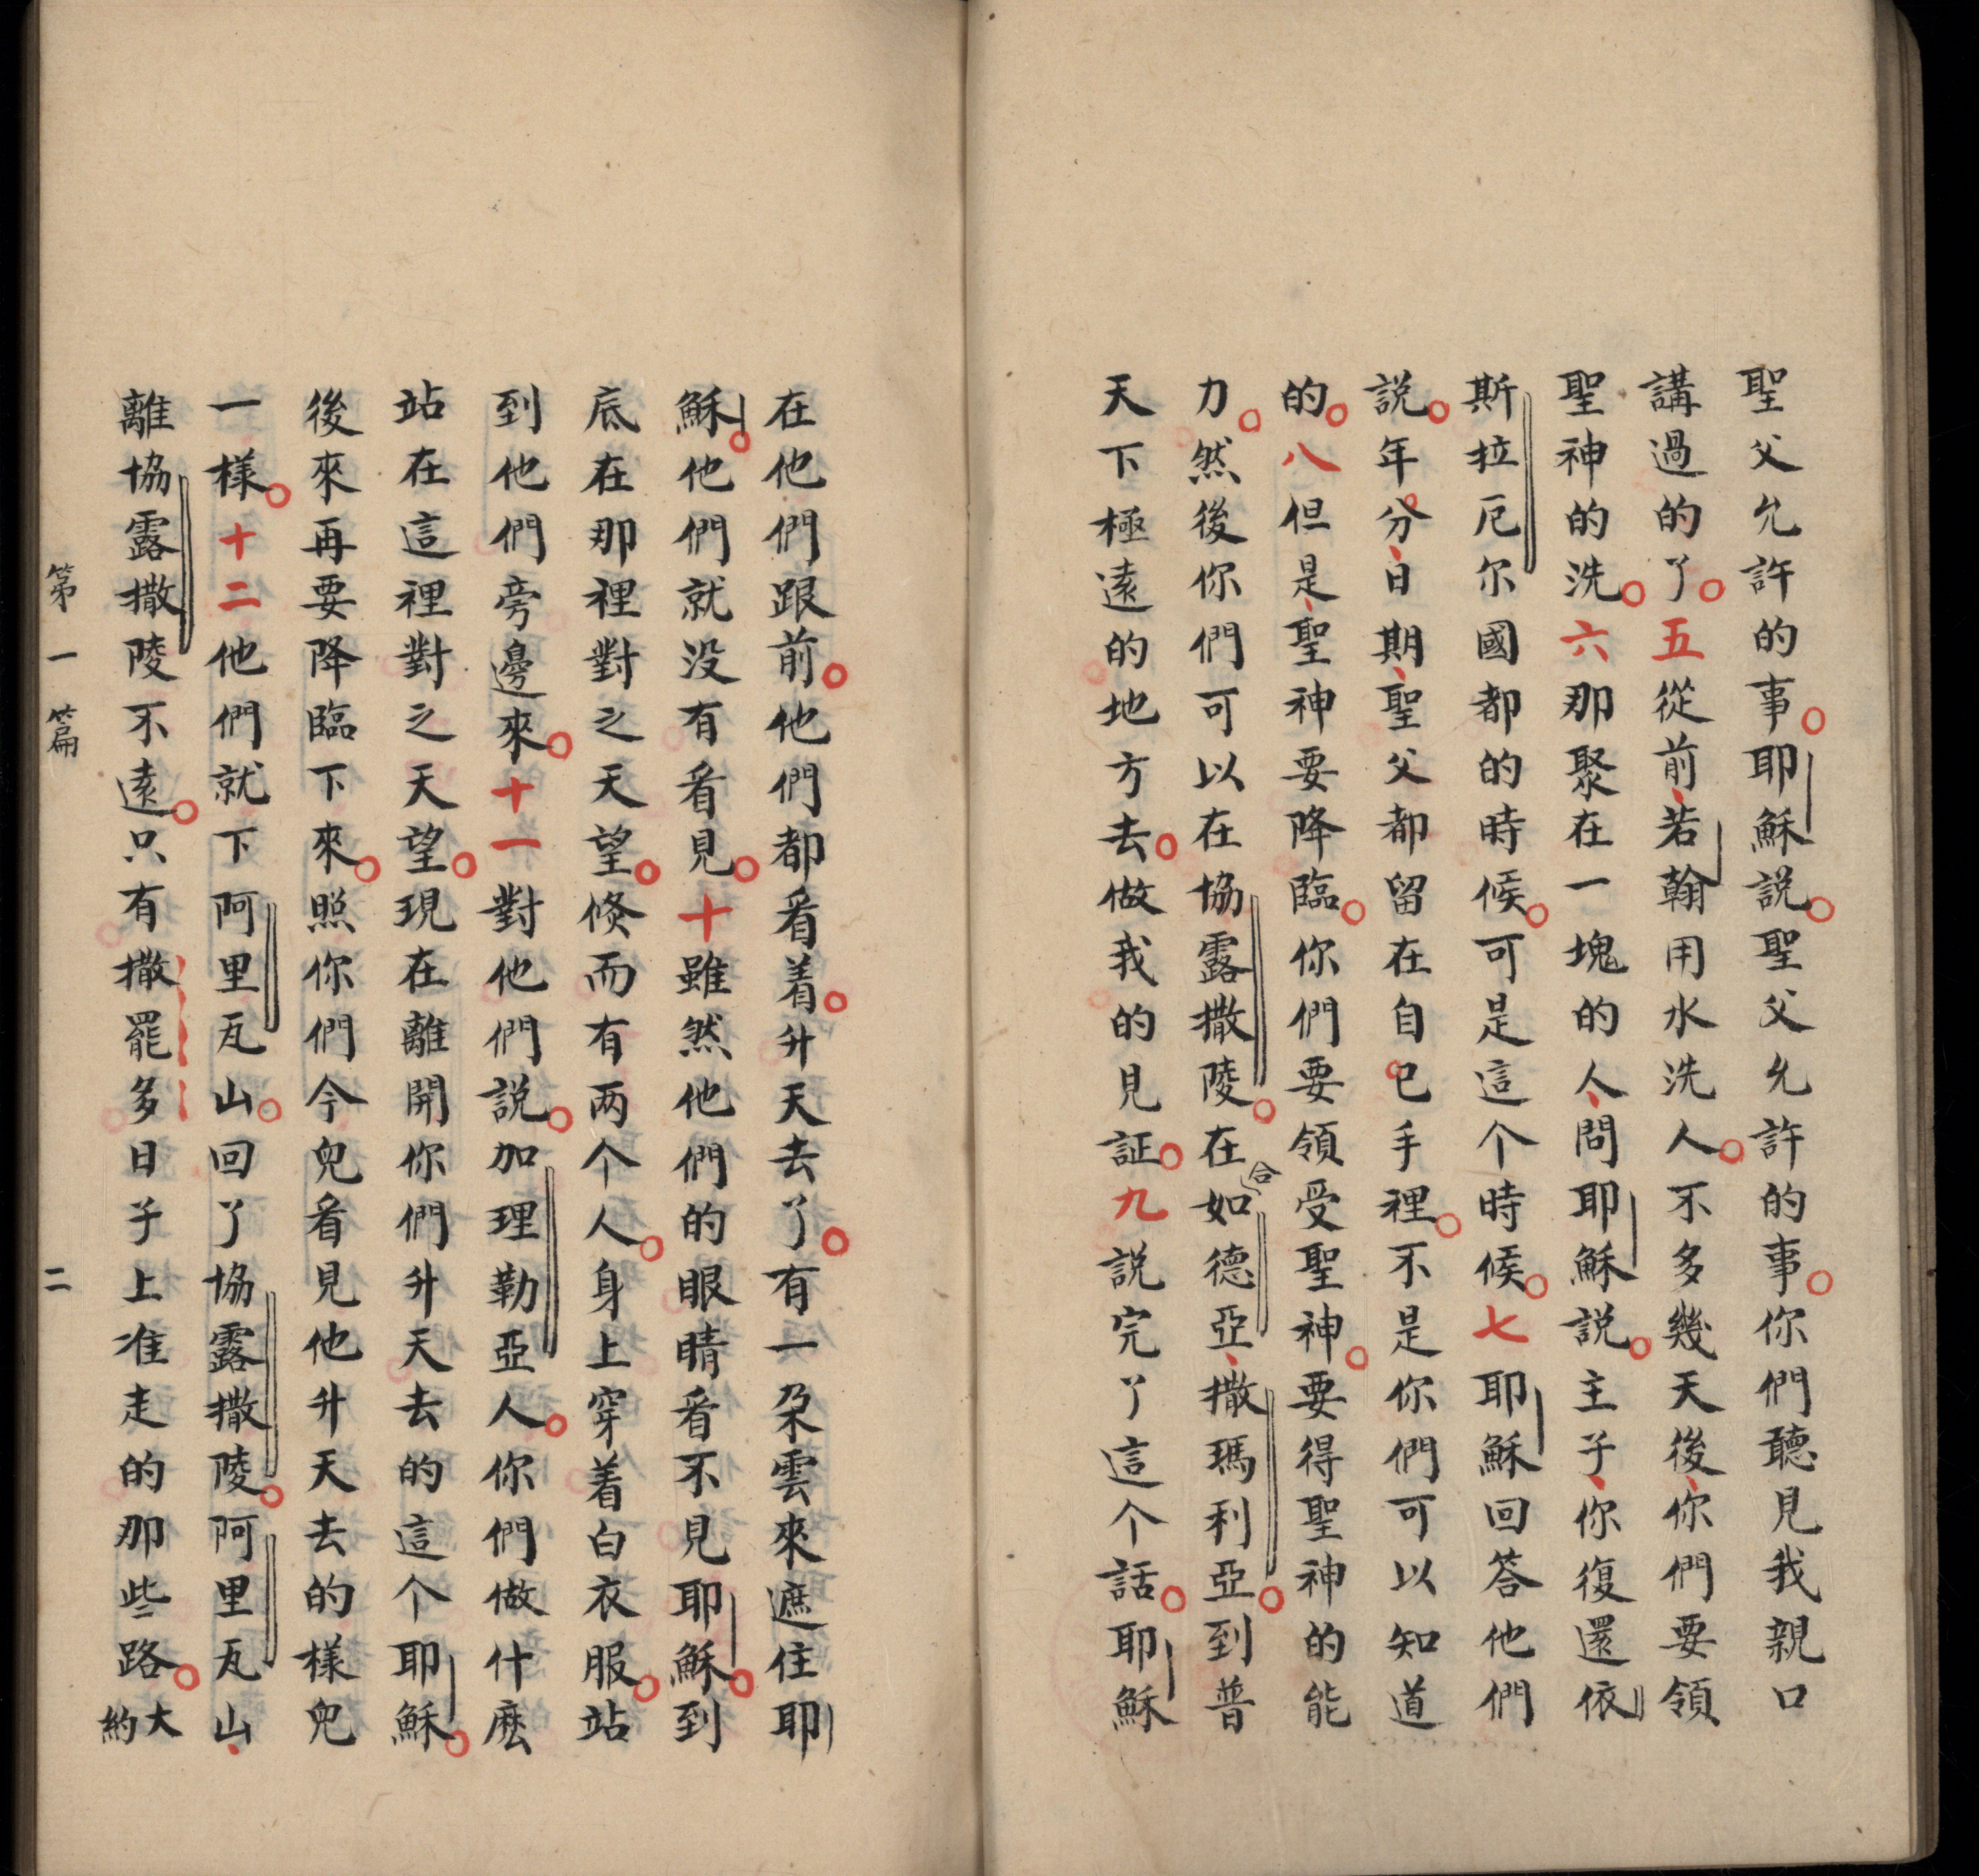 聖父允許的事。耶穌説。聖父允許的事。你們聽見我親口
講過的了。五從前、若翰用水洗人。不多幾天後、你們要領
聖神的洗。六那聚在一塊的人、問耶穌説。主子、你復還依
斯拉厄尔國都的時候。可是這个時候。七耶穌回答他們
説。年分、日期、聖父都留在自已手裡。不是你們可以知道
的。八但是、聖神要降臨。你們要領受聖神。要得聖神的能
力。然後你們可以在協露撒陵。在合如德亞、撒瑪利亞。到普
天下極遠的地方去。做我的見証。九説完了這个話。耶穌
在他們跟前。他們都看着。升天去了。有一朶雲來遮住耶
穌。他們就没有看見。十雖然他們的眼睛看不見耶穌。到
底在那裡對之天望。倐而有两个人。身上穿着白衣服。站
到他們旁邊來。十一對他們説。加理勒亞人。你們做什麽
站在這裡對之天望。現在離開你們升天去的這个耶穌。
後來再要降臨下來。照你們今兒看見他升天去的樣兒
一樣。十二他們就下阿里瓦山。回了協露撒陵。阿里瓦山、
離協露撒陵不遠。只有撒罷多日子上准走的那些路。大約
第一篇 二